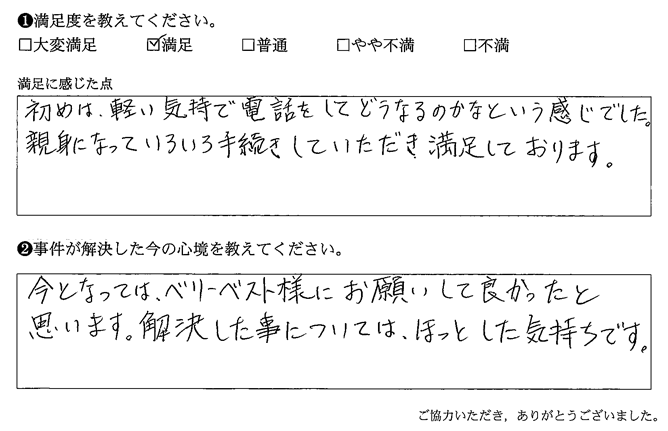 ❶満足度を教えてください。
□大変満足 ☑満足 □普通 □やや不満 □不満
満足に感じた点
初めは、軽い気持で電話をしてどうなるのかなという感じでした。
親身になっていろいろ手続きしていただき満足しております。
❷事件が解決した今の心境を教えてください。
今となっては、ベリーベスト様にお願いして良かったと
思います。解決した事については、ほっとした気持ちです。
ご協力いただき，ありがとうございました。